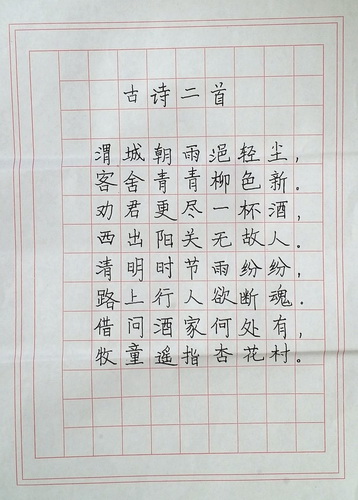 古诗二首
渭城朝雨浥轻尘，
客舍青青柳色新。
劝君更尽一杯酒，
西出阳关无故人。
清明时节雨纷纷，
路上行人欲断魂.
借问酒家何处有，
牧童遥指杏花村。